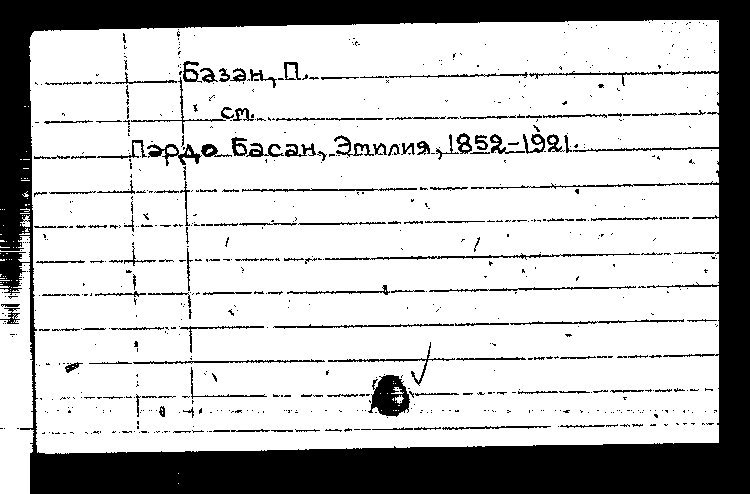 Базан, П.
см.
Пардо Басан, Эмилия, 1852-1921.